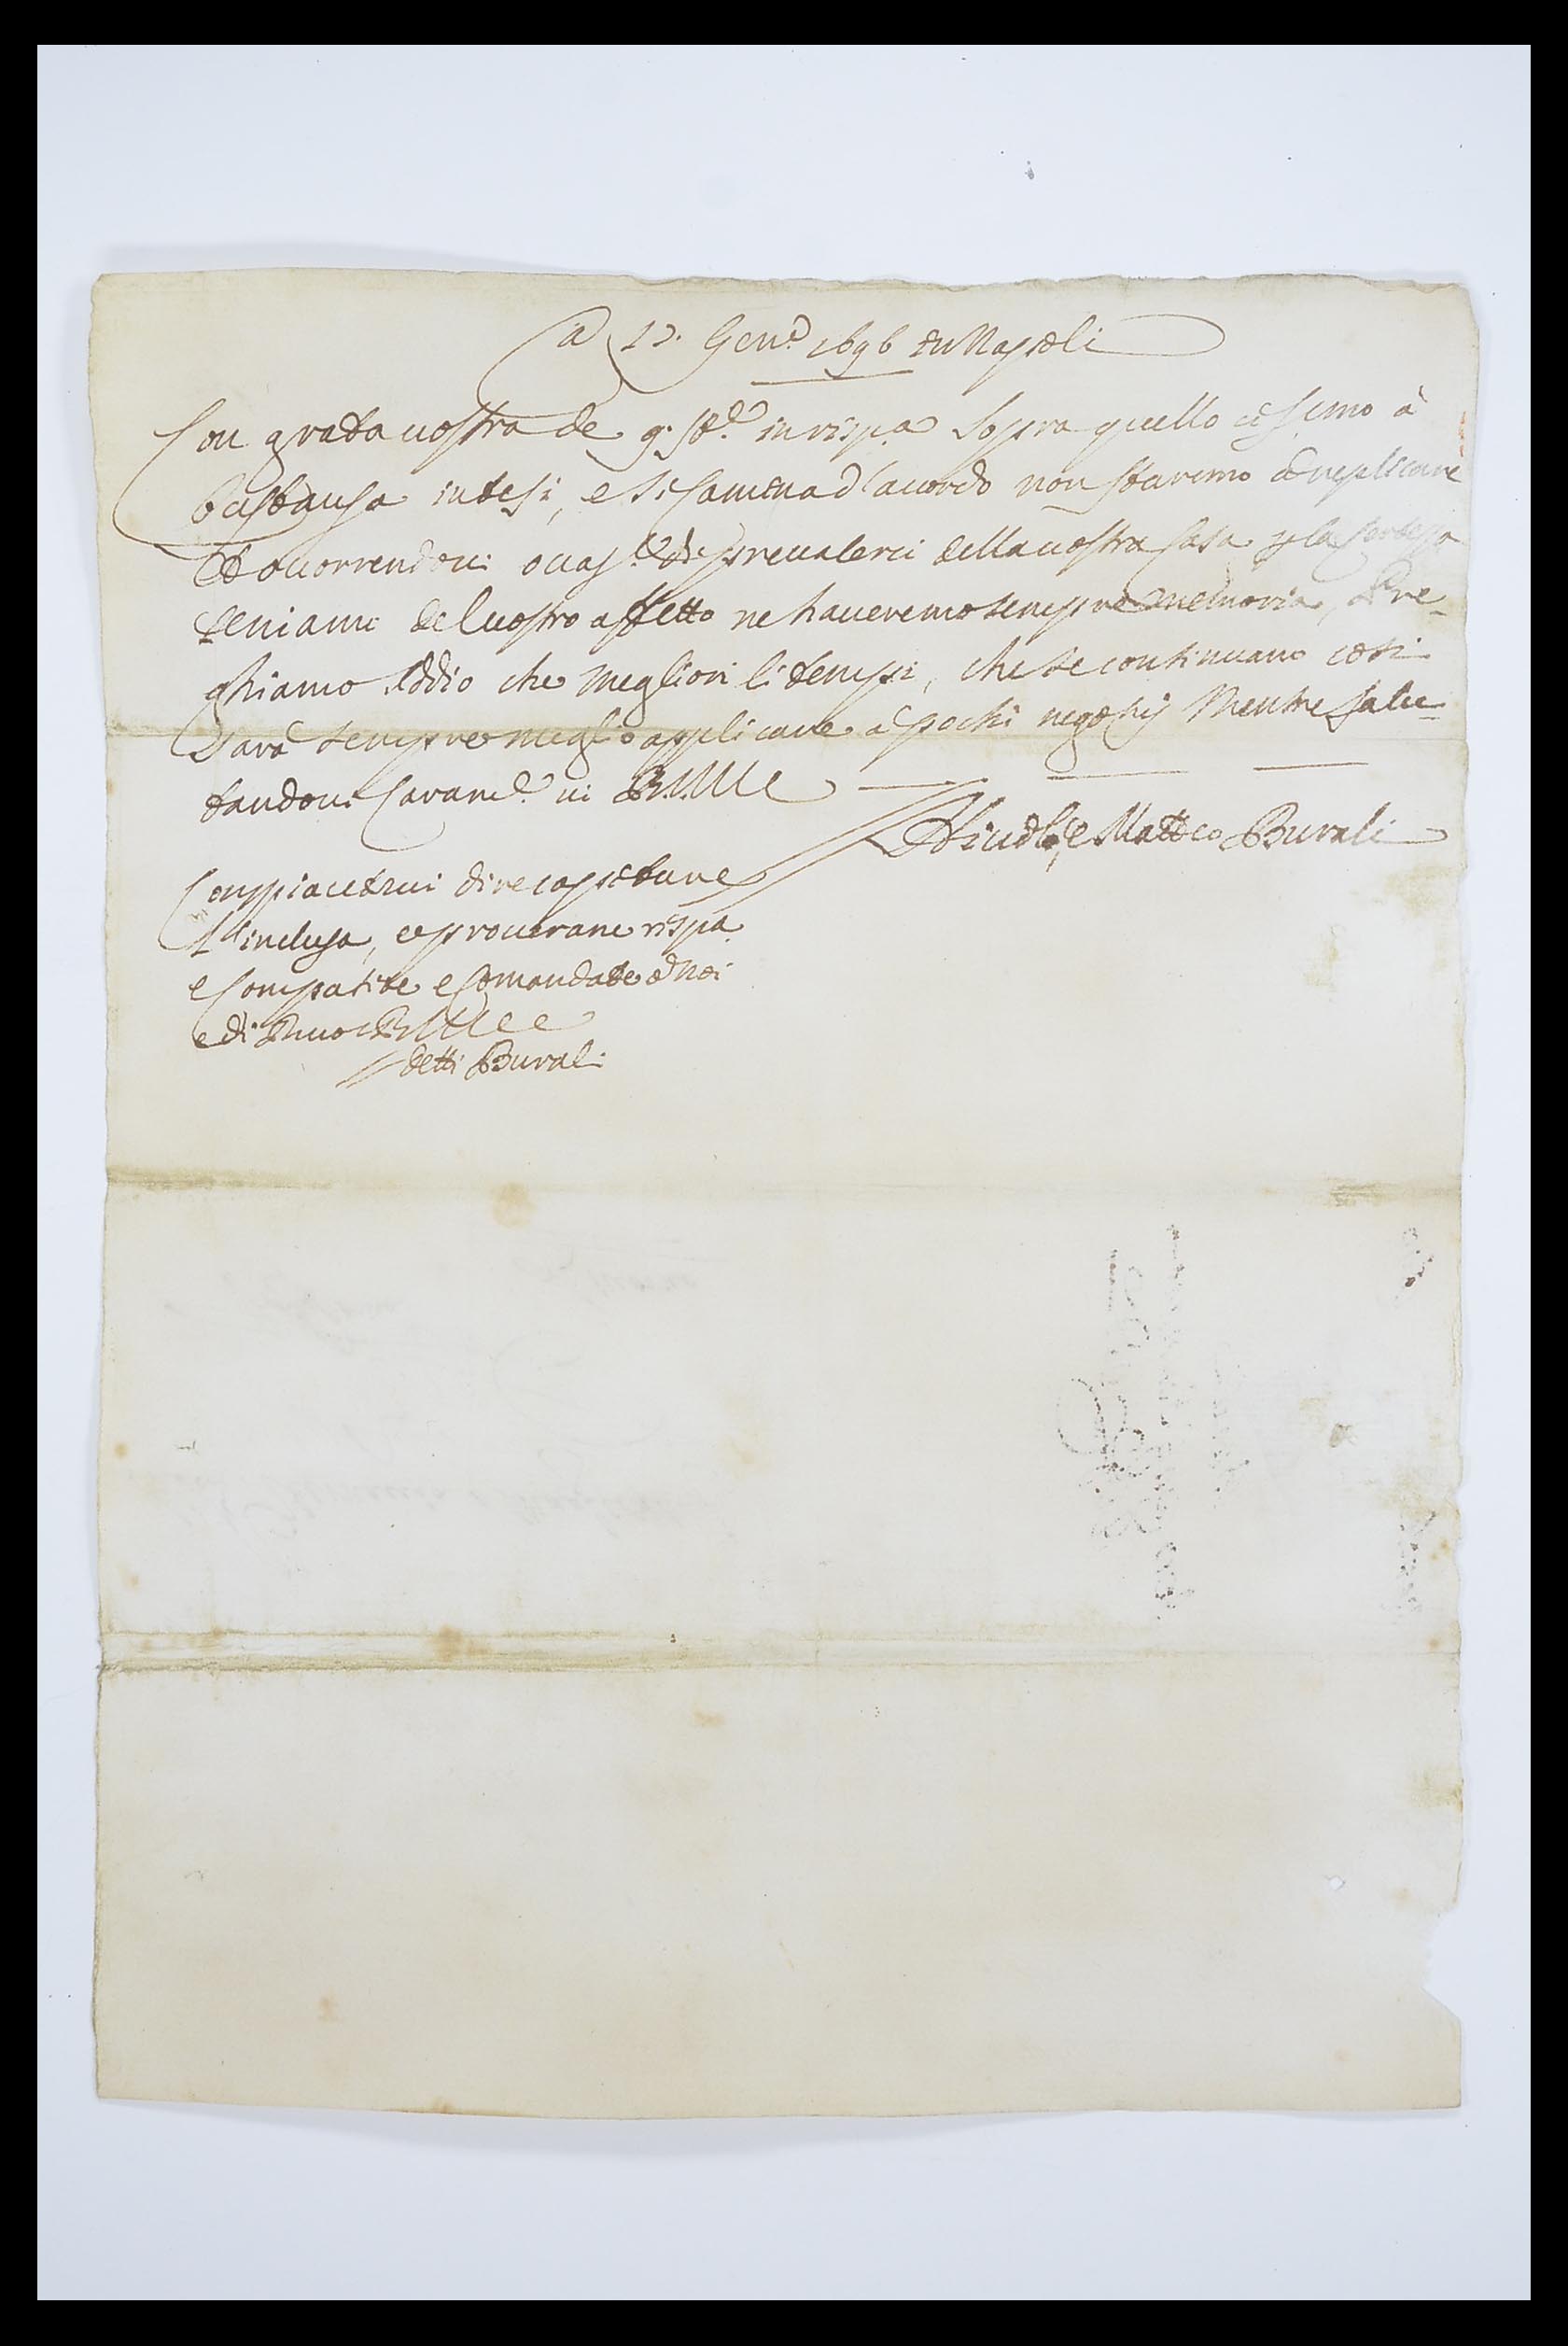 A 17. Genn.o 1696 in Napoli
Con grata vostra de 9. st.e in risp.a sopra quello ci simo à
bastansa intesi, e si camina d'acordo non staremo à replicare
et ocorrendoci ocas.e di prevalerci della vostra casa p la certessa
teniamo del vostro affetto ne haveremo sempre memoria, Pre-
ghiamo Iddio che megliori li tempi, che se continuano cosi
sara sempre meglio applicare à pochi negotij Mentre salu-
tandovi caram.e vi B.M.
e Matteo Burali
Compiacetevi di recapitare
l'inclusa, e procurarne rispa
e Compatite e Comandate à Noi
e di nuovo
detti Burali